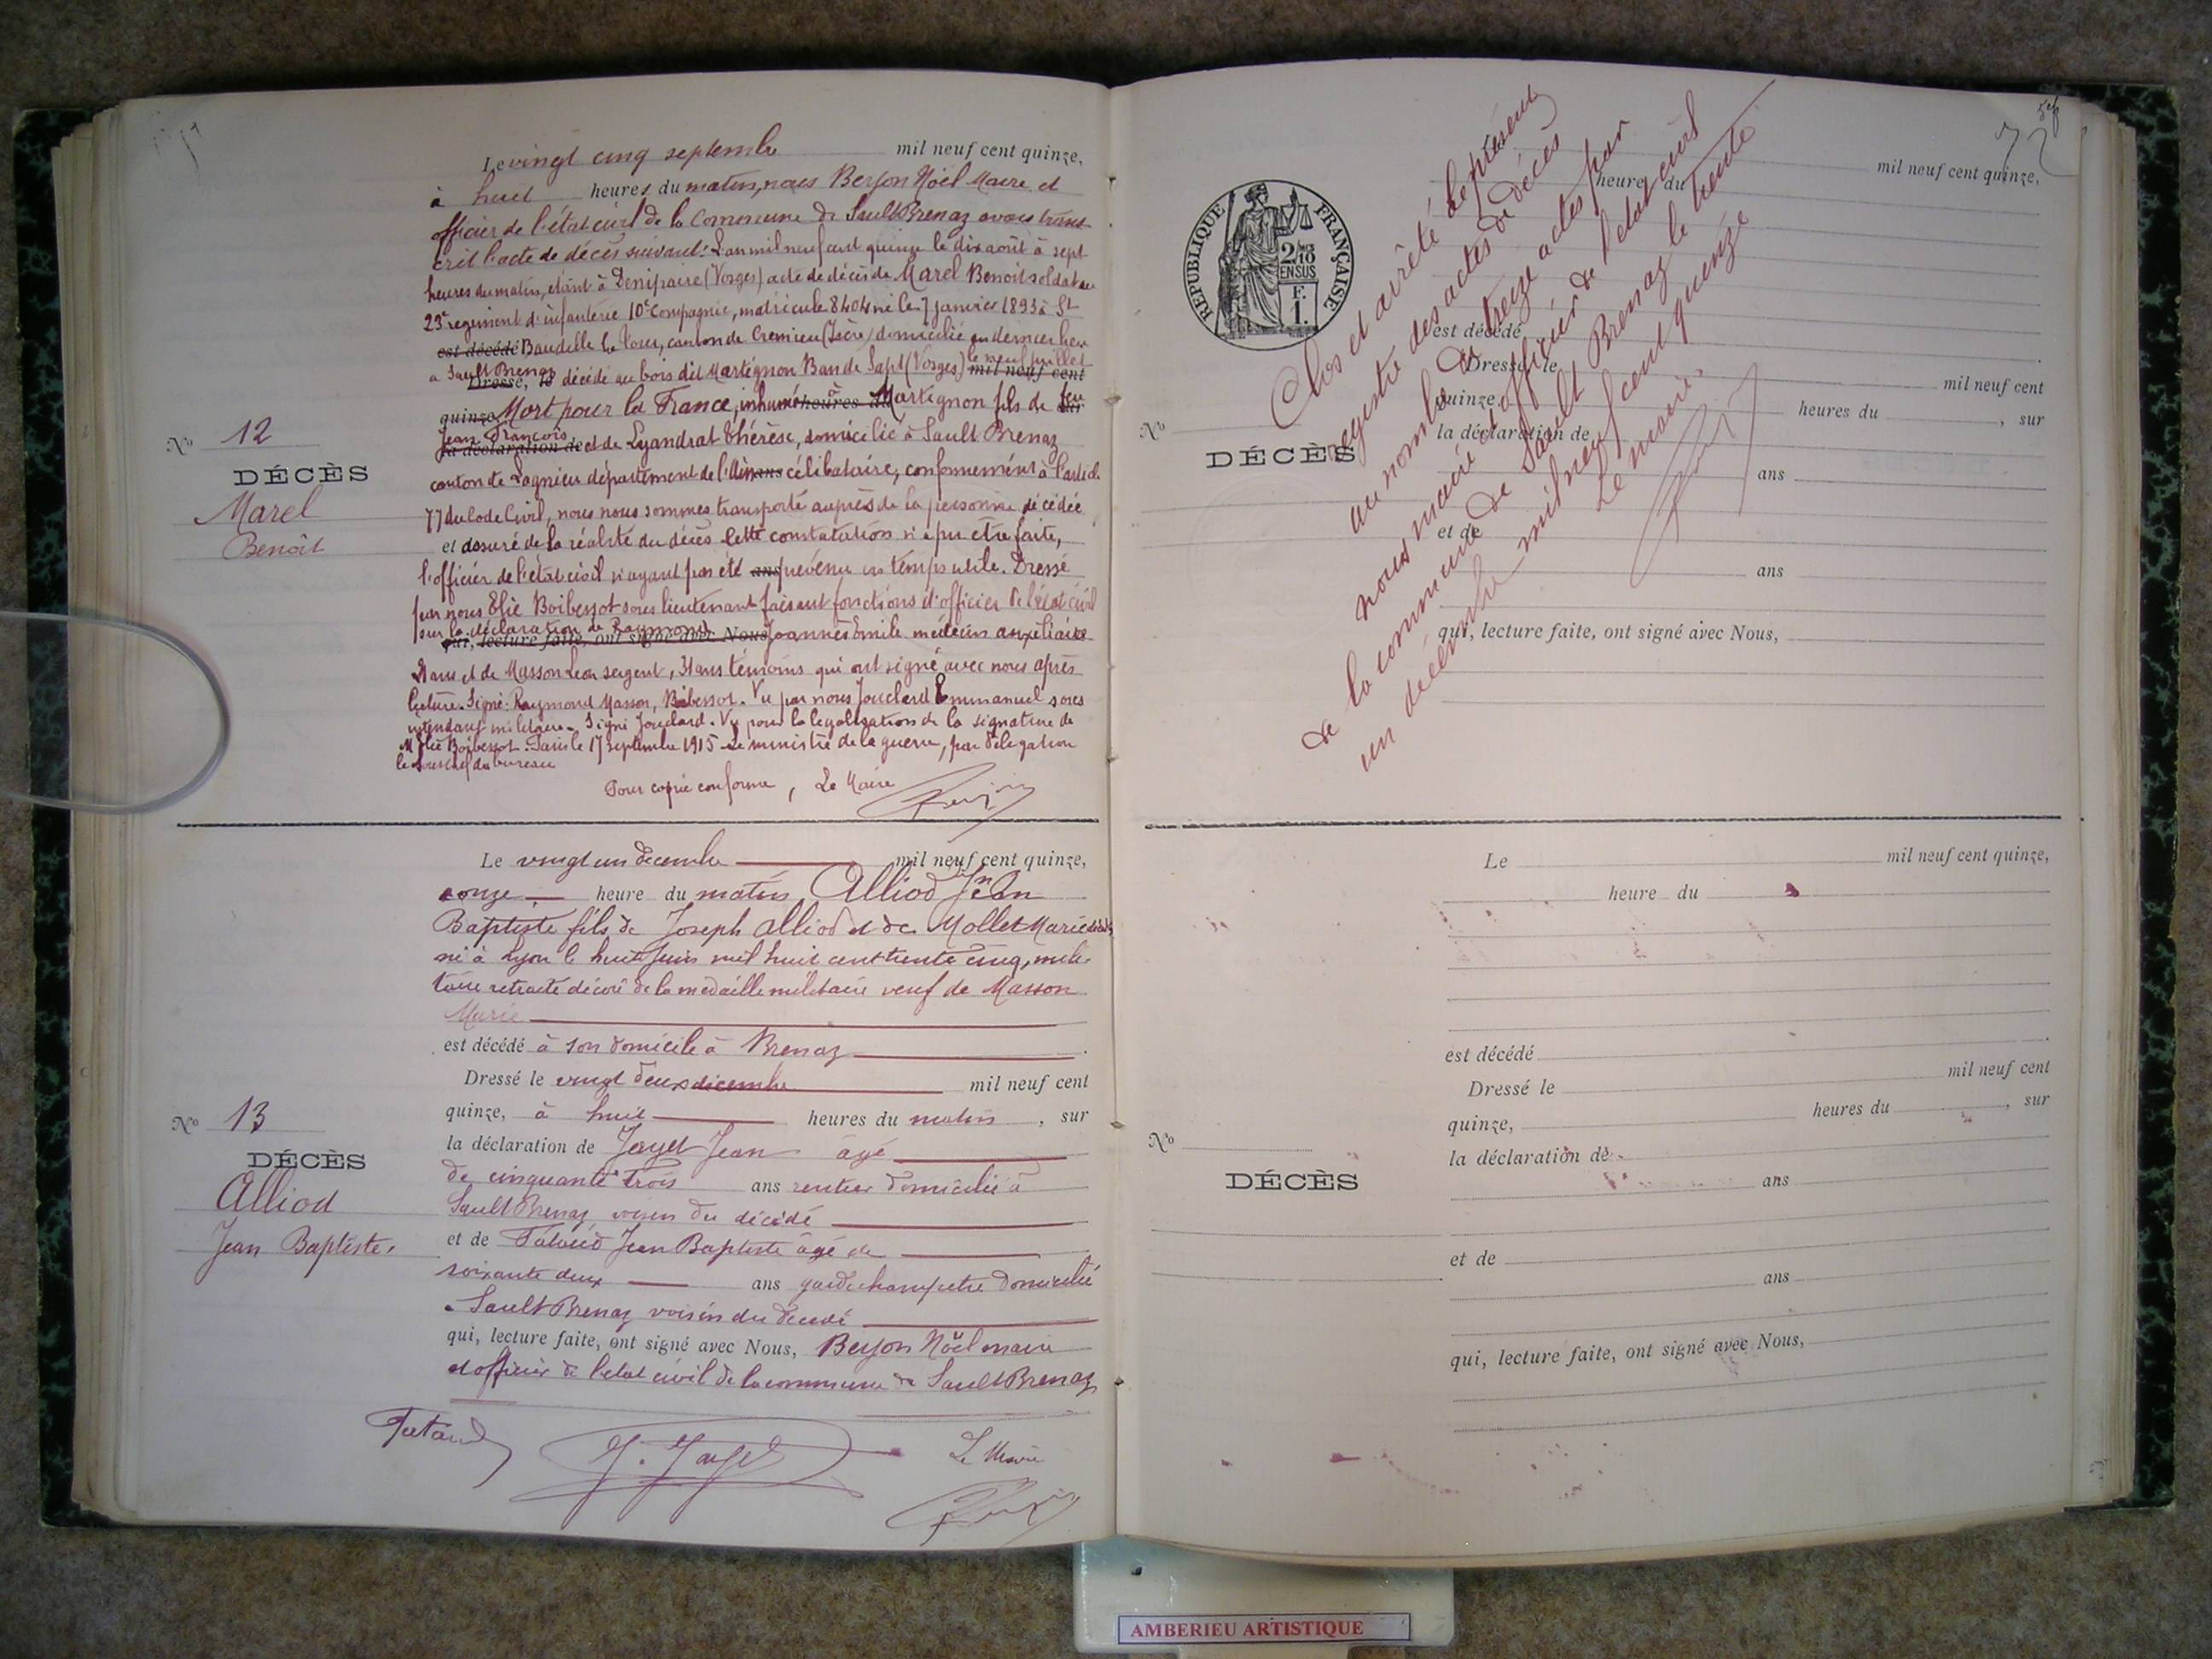 Le vingt cinq septembre mil neuf cent quinze,
à huit heures du matin, nous Berjon Noël Maire et
officier de l'état civil de la Commune de Sault Brenaz avons trans-
crit l'acte de décès suivant: L'an mil neuf cent quinze le dix août à sept
heures du matin, étant à Denipaire (Vosges) acte de décès de Marel Benoit soldat au
23e regiment d'infanterie 10e Compagnie, matricule 8404 né le 7 janvier 1893 à St
est décédé Baudille la Tour, canton de Cremieu (Isère) domicilié en dernier lieu
à Sault Brenaz Dressé, le décédé au bois dit Martignon Ban de Sapt (Vosges) le neuf juillet mil neuf cent
quinze Mort pour la France, inhumé heures du à Martignon fils de feu sur
Jean François la déclaration de et de Lyandrat Thérèse, domicilié à Sault Brenaz
canton de Lagnieu département de l'Ain ans célibataire, conformément à l'article
77 du Code Civil, nous nous sommes transporté auprès de la personne décédée
et assuré de la réalité du décès Cette constatation n'a pu etre faite,
l'officier de l'état civil n'ayant pas été ans prévenu en temps utile. Dressé
par nous Elie Boibessot sous lieutenant faisant fonctions d'officier de l'état civil
sur la déclaration de Raymond qui, lecture faite, ont signé avec Nous Joannès Emile médecin auxiliaire
ans et de Masson Leon sergent, 31 ans témoins qui ont signé avec nous après
lecture. Signé: Raymond Masson, Boibessot. Vu par nous Jouclard Emmanuel sous
intendant militaire. Signé Jouclard. Vu pour la légalisation de la signature de
M Elie Boibessot. Paris le 17 septembre 1915 Le ministre de la guerre, par délégation
le sous chef du bureau
Pour copie conforme, Le Maire
No 12
DÉCÈS
Marel
Benoît
Le vingt un décembre mil neuf cent quinze,
à onze heure du matin Alliod Jean
Baptiste fils de Joseph Alliod et de Mollet Marie
né à Lyon le huit juin mil huit cent trente cinq, mili-
taire retraité décoré de la médaille militaire veuf de Masson
Marie
est décédé à son domicile à Brenaz.
Dressé le vingt deux décembre mil neuf cent
quinze, à huit heures du matin, sur
la déclaration de Jayet Jean âgé
de cinquante trois ans rentier domicilié à
Sault Brenaz voisin du décédé
et de Jean Baptiste âgé de
soixante deux ans garde champetre domicilié
à Sault Brenaz voisin du décédé
qui, lecture faite, ont signé avec Nous, Berjon Noël maire
et officier de l'état civil de la commune de Sault Brenaz
No 13
DÉCÈS
Alliod
Jean Baptiste.
J. Jayet
Le Maire
72
RÉPUBLIQUE FRANÇAISE
2/10 EN SUS
F. 1.
mil neuf cent quinze,
heure du
est décédé
Dressé le mil neuf cent
quinze, heures du , sur
la déclaration de
ans
et de
ans
qui, lecture faite, ont signé avec Nous,
No
DÉCÈS
Clos et arrêté le présent
registre des actes de décès
au nombre de treize actes par
nous maire et officier de l'état civil
de la commune de Sault Brenaz le trente
un décembre mil neuf cent quinze
Le maire.
Le mil neuf cent quinze,
heure du
est décédé
Dressé le mil neuf cent
quinze, heures du , sur
la déclaration de
ans
et de
ans
qui, lecture faite, ont signé avec Nous,
No
DÉCÈS
AMBERIEU ARTISTIQUE